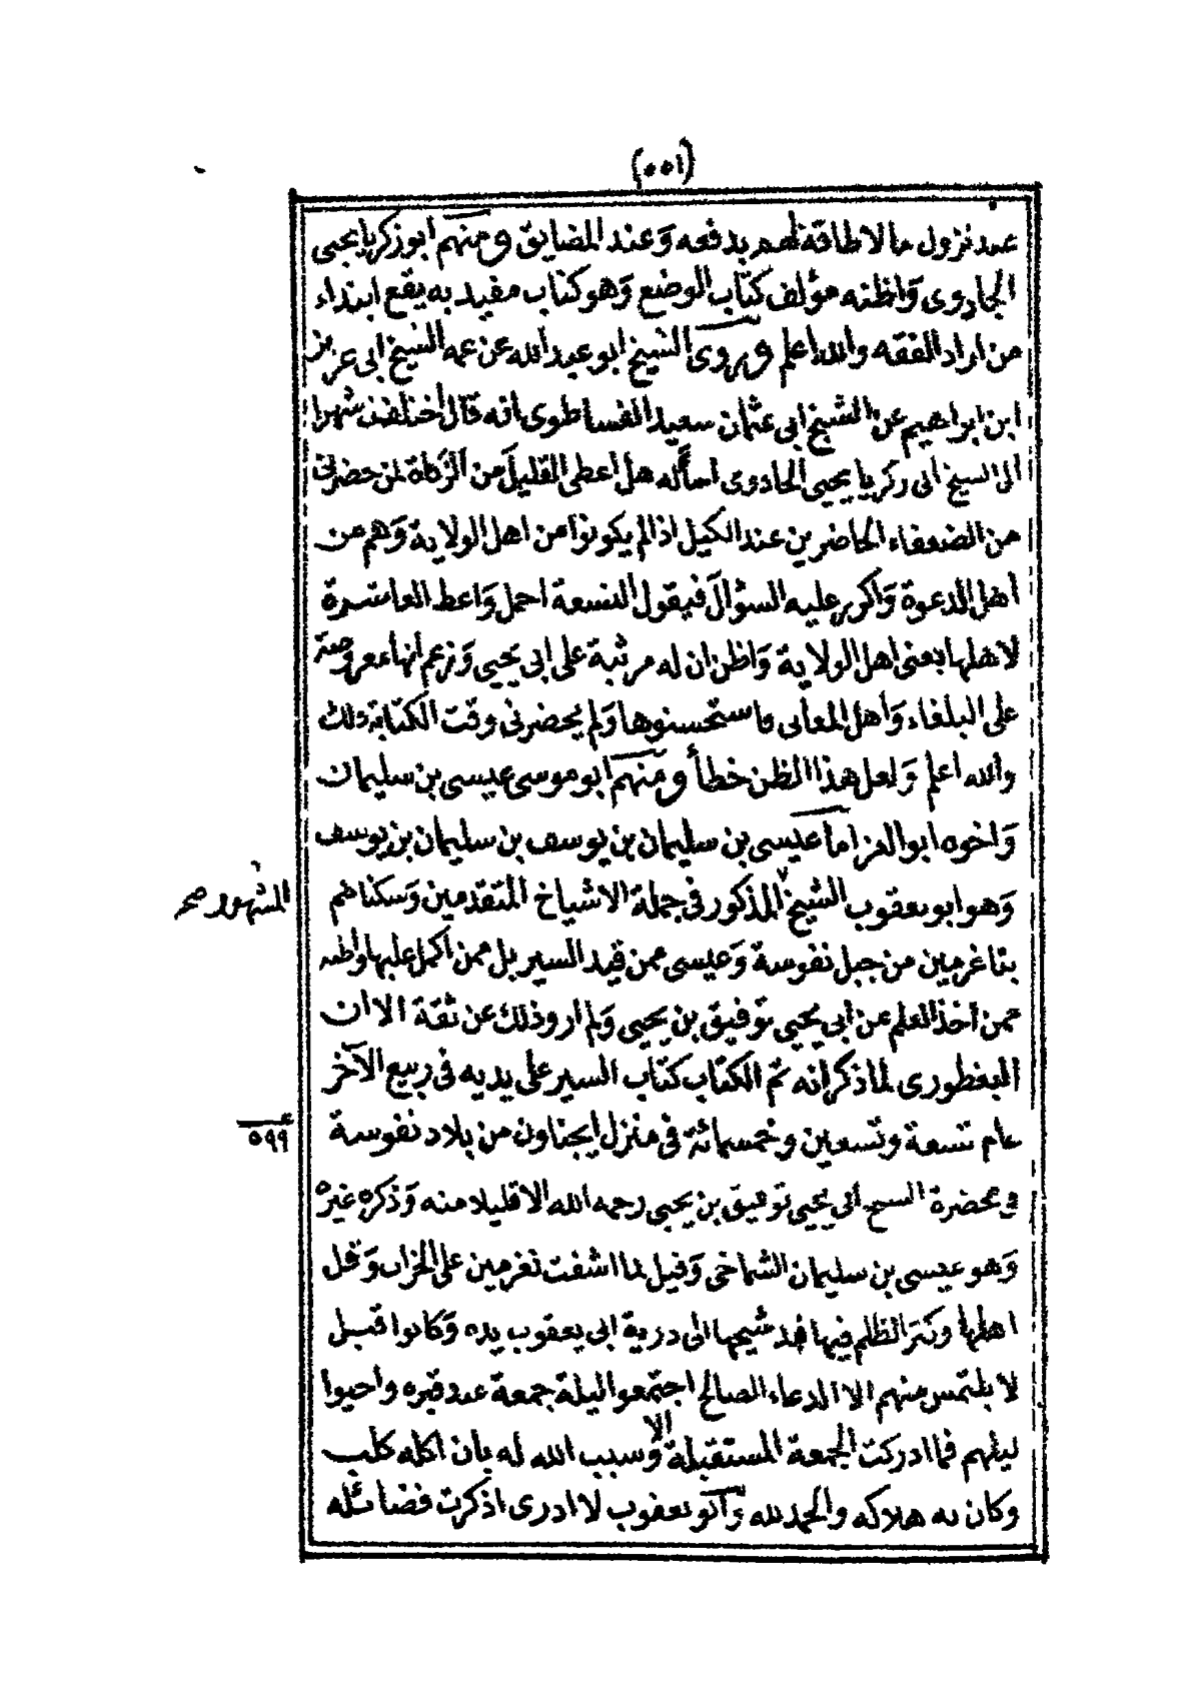 (٥٥١)
عند نزول ما لا طاقة لهم بدفعه وَعند المضايق ومنهم ابو زكريا يحيى
الجادوى وَاظنه مؤلف كتاب الوضع وَهو كتاب مفيد به يقع ابتداء
من اراد الفقه والله اعلم ويروى الشيخ ابو عبد الله عن عمه الشيخ ابى عزيز
ابن ابراهيم عن الشيخ ابى عثمان سعيد القسا طوى انه قال اختلفت شهرا
الى الشيخ ابى زكريا يحيى الجادوى اسأله هل اعطى القليل من الزكاة لمن حضرنى
من الضعفاء الحاضرين عند الكيل اذا لم يكونوا من اهل الولاية وَهم من
اهل الدعوة وَاكرر عليه السؤال فيقول التسعة احمل وَاعط العاشرة
لاهلها يعنى اهل الولاية وَاظن ان له مرثية على ابى يحيى وَزعم انها معروضة
على البلغاء وَاهل المعانى فاستحسنوها وَلم يحضرنى وقت الكتابة ذلك
والله اعلم وَلعل هذا الظن خطأ ومنهم ابو موسى عيسى بن سليمان
وَاخوه ابو العز اما عيسى بن سليمان بن يوسف بن سليمان بن يوسف
وَهو ابو يعقوب الشيخ المذكور فى جملة الاشياخ المتقدمين وَسكناهم
المشهور صح
بتاغرمين من جبل نفوسة وَعيسى ممن قيد السير بل ممن اكمل عليها واظنه
ممن اخذ العلم عن ابى يحيى توفيق بن يحيى وَلم ارو ذلك عن ثقة الا ان
البغطورى لما ذكر انه تم الكتاب كتاب السير على يديه فى ربيع الآخر
عام تسعة وتسعين وخمسمائة فى منزل ايجناون من بلاد نفوسة
٥٩٩
فى محضرة الشيخ ابى يحيى توفيق بن يحيى رحمه الله الا قليلا منه وَذكره غيره
وَهو عيسى بن سليمان الشماخى وَقيل لما اشفت تغرمين على الخراب وَقل
اهلها وكثر الظلم فيها فمد شيخها الى ذرية ابى يعقوب يده وَكانوا قبل
لا يلتمس منهم الا الدعاء الصالح اجتمعوا ليلة جمعة عند قبره واحيوا
ليلهم فما ادركت الجمعة المستقبلة الا وَسبب الله له بان اكله كلب
وكان به هلاكه والحمد لله وَابو يعقوب لا ادرى اذكرت فضائله